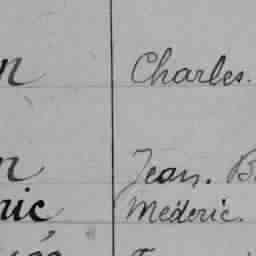 n Charles.
n Jean. B
ric Médéric.